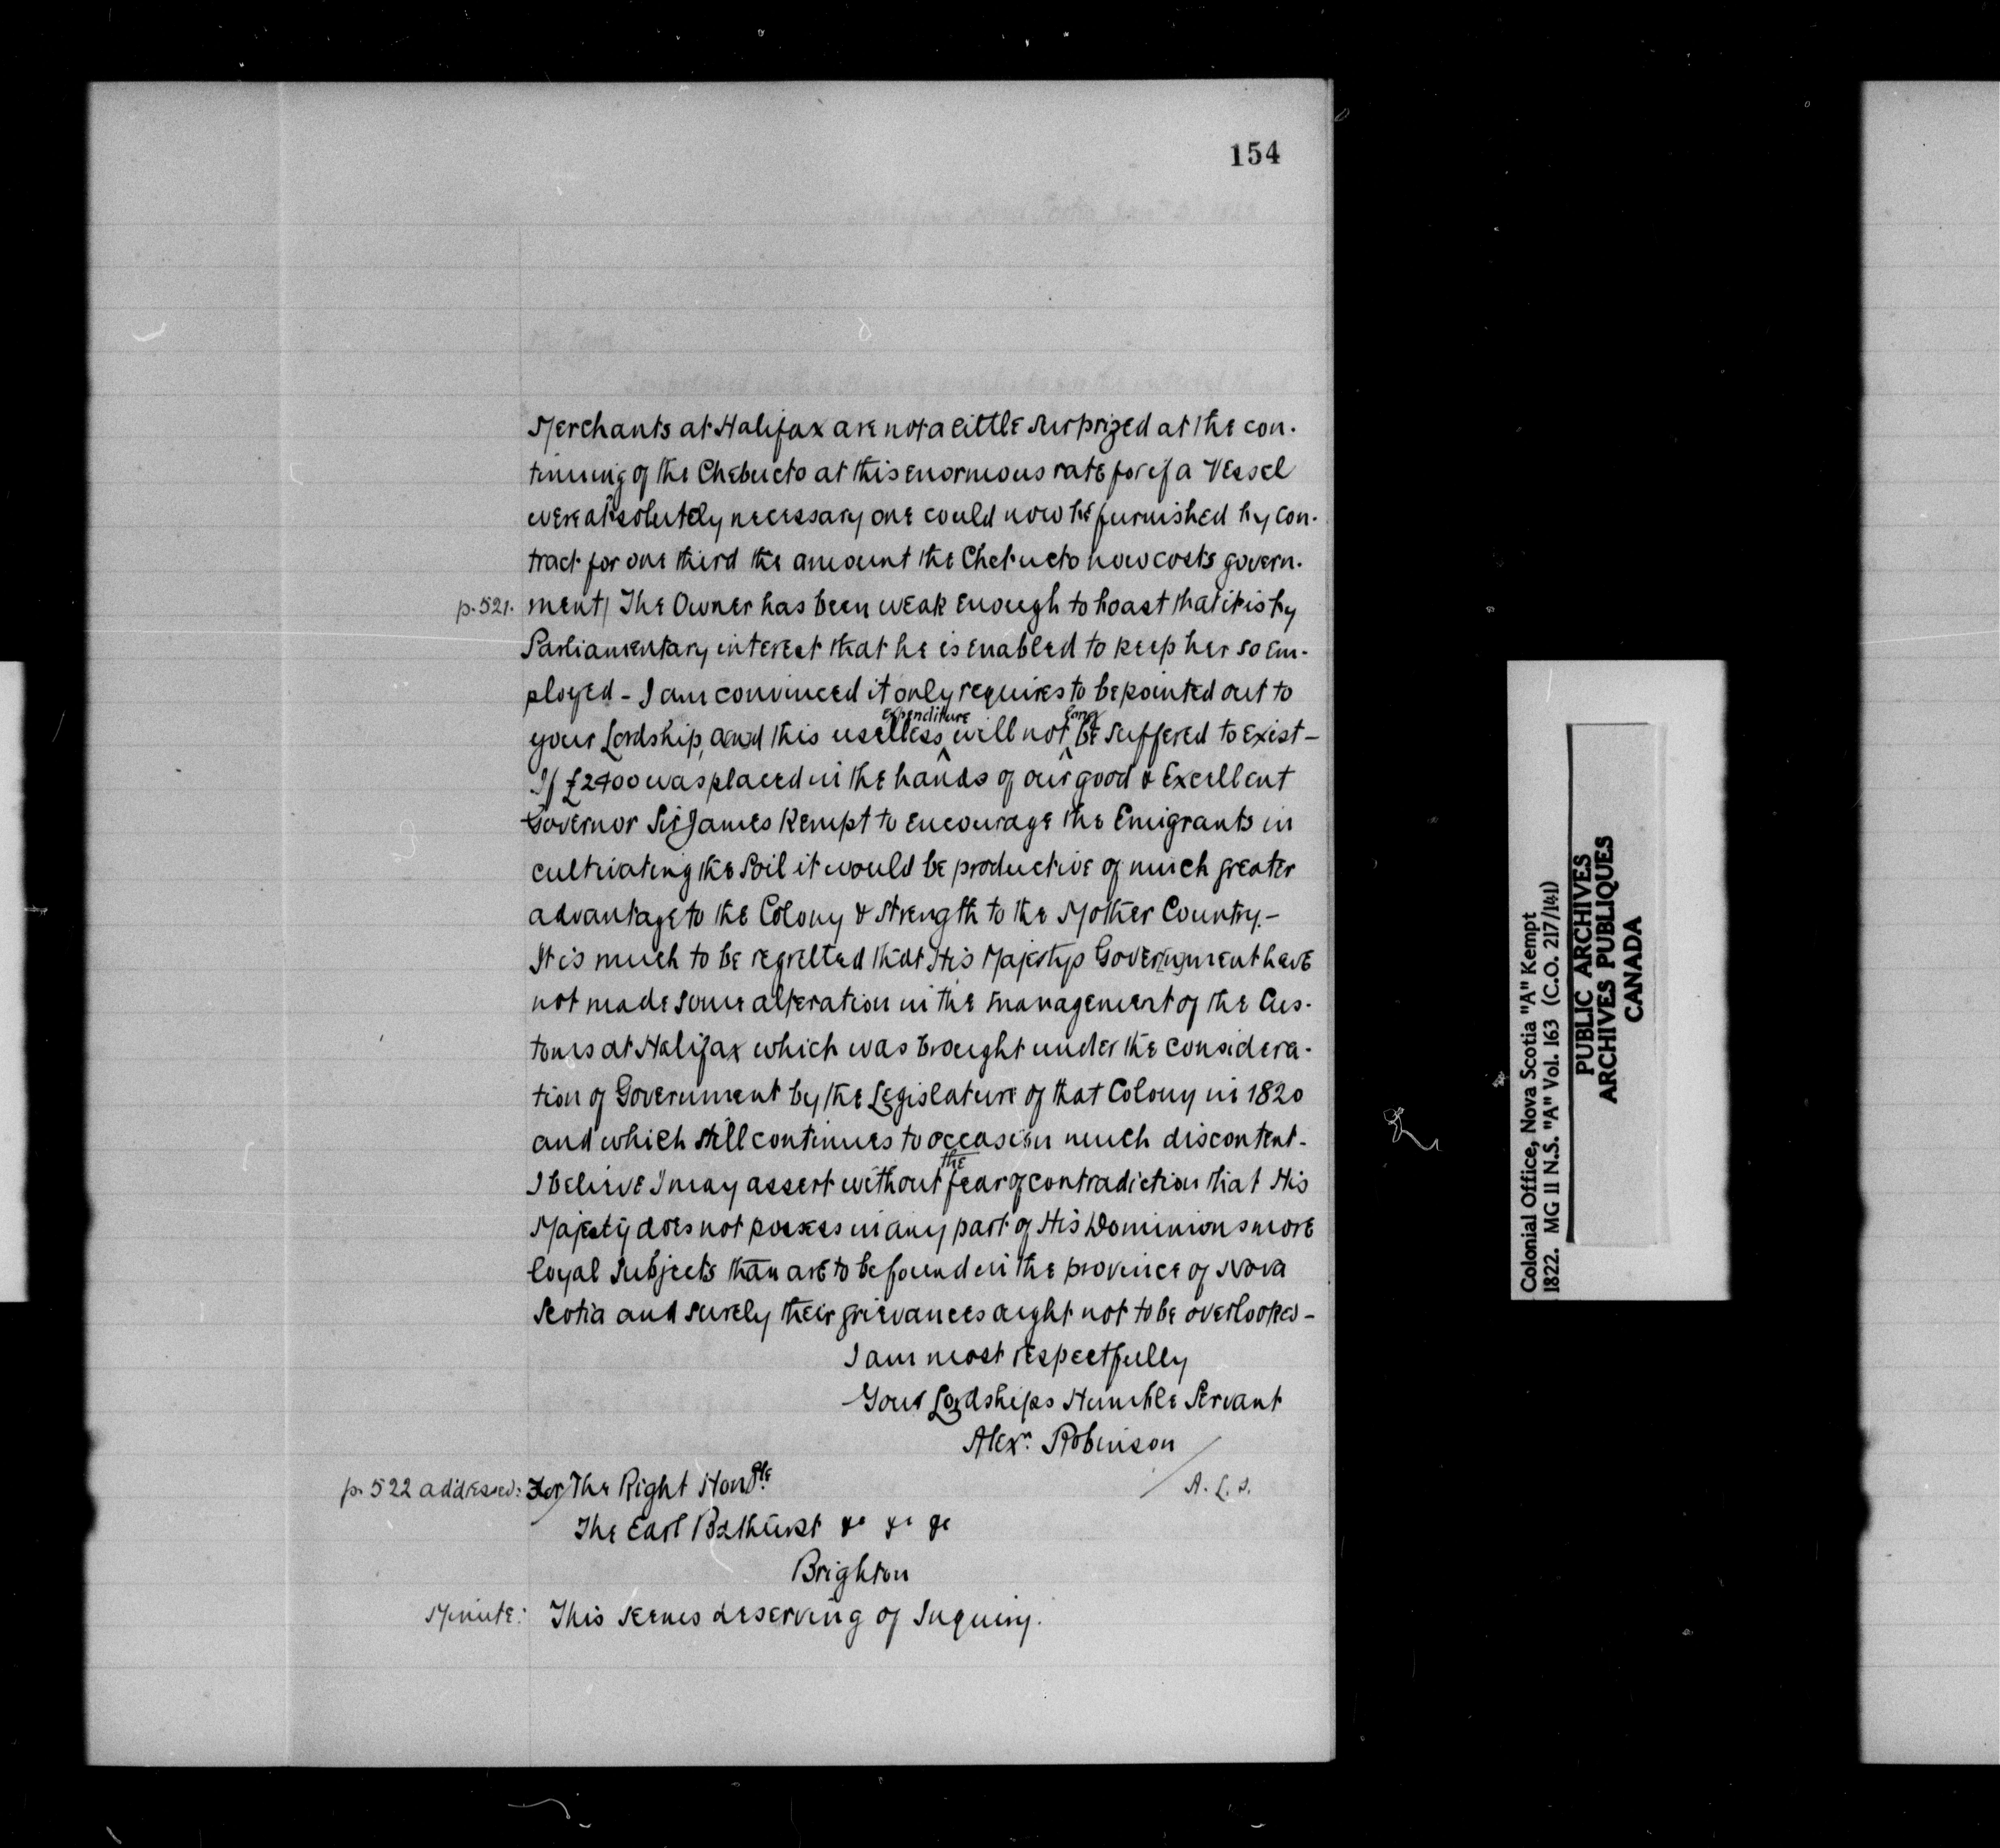 154
Merchants at Halifax are not a little surprized at the con-
tinuing of the Chebucto at this enormous rate for if a Vessel
were absolutely necessary one could now be furnished by con-
tract for one third the amount the Chebucto now costs govern-
p. 521. ment / The Owner has been weak enough to boast that it is by
Parliamentary interest that he is enabled to keep her so em-
ployed - I am convinced it only requires to be pointed out to
your Lordship, and this useless ^expenditure will not ^long be suffered to exist -
If £2400 was placed in the hands of our good & Excellent
Governor Sir James Kempt to encourage the Emigrants in
cultivating the Soil it would be productive of much greater
advantage to the Colony & strength to the Mother Country. -
It is much to be regretted that His Majestys Gover[n]ment have
not made some alteration in the management of the Cus-
toms at Halifax which was brought under the considera-
tion of Government by the Legislature of that Colony in 1820
and which still continues to occasion much discontent -
I believe I may assert without the fear of contradiction that His
Majesty does not possess in any part of His Dominions more
loyal subjects than are to be found in the province of Nova
Scotia and surely their grievances aught not to be overlooked -
I am most respectfully
Your Lordships Humble Servant
Alexr. Robinson
p. 522 addressed: For / The Right Honble. A. L. S.
The Earl Bathurst &c &c &c
Brighton
Minute: This seems deserving of Inquiry.
Colonial Office, Nova Scotia "A" Kempt
1822. MG 11 N.S. "A" Vol. 163 (C.O. 217/141)
PUBLIC ARCHIVES
ARCHIVES PUBLIQUES
CANADA